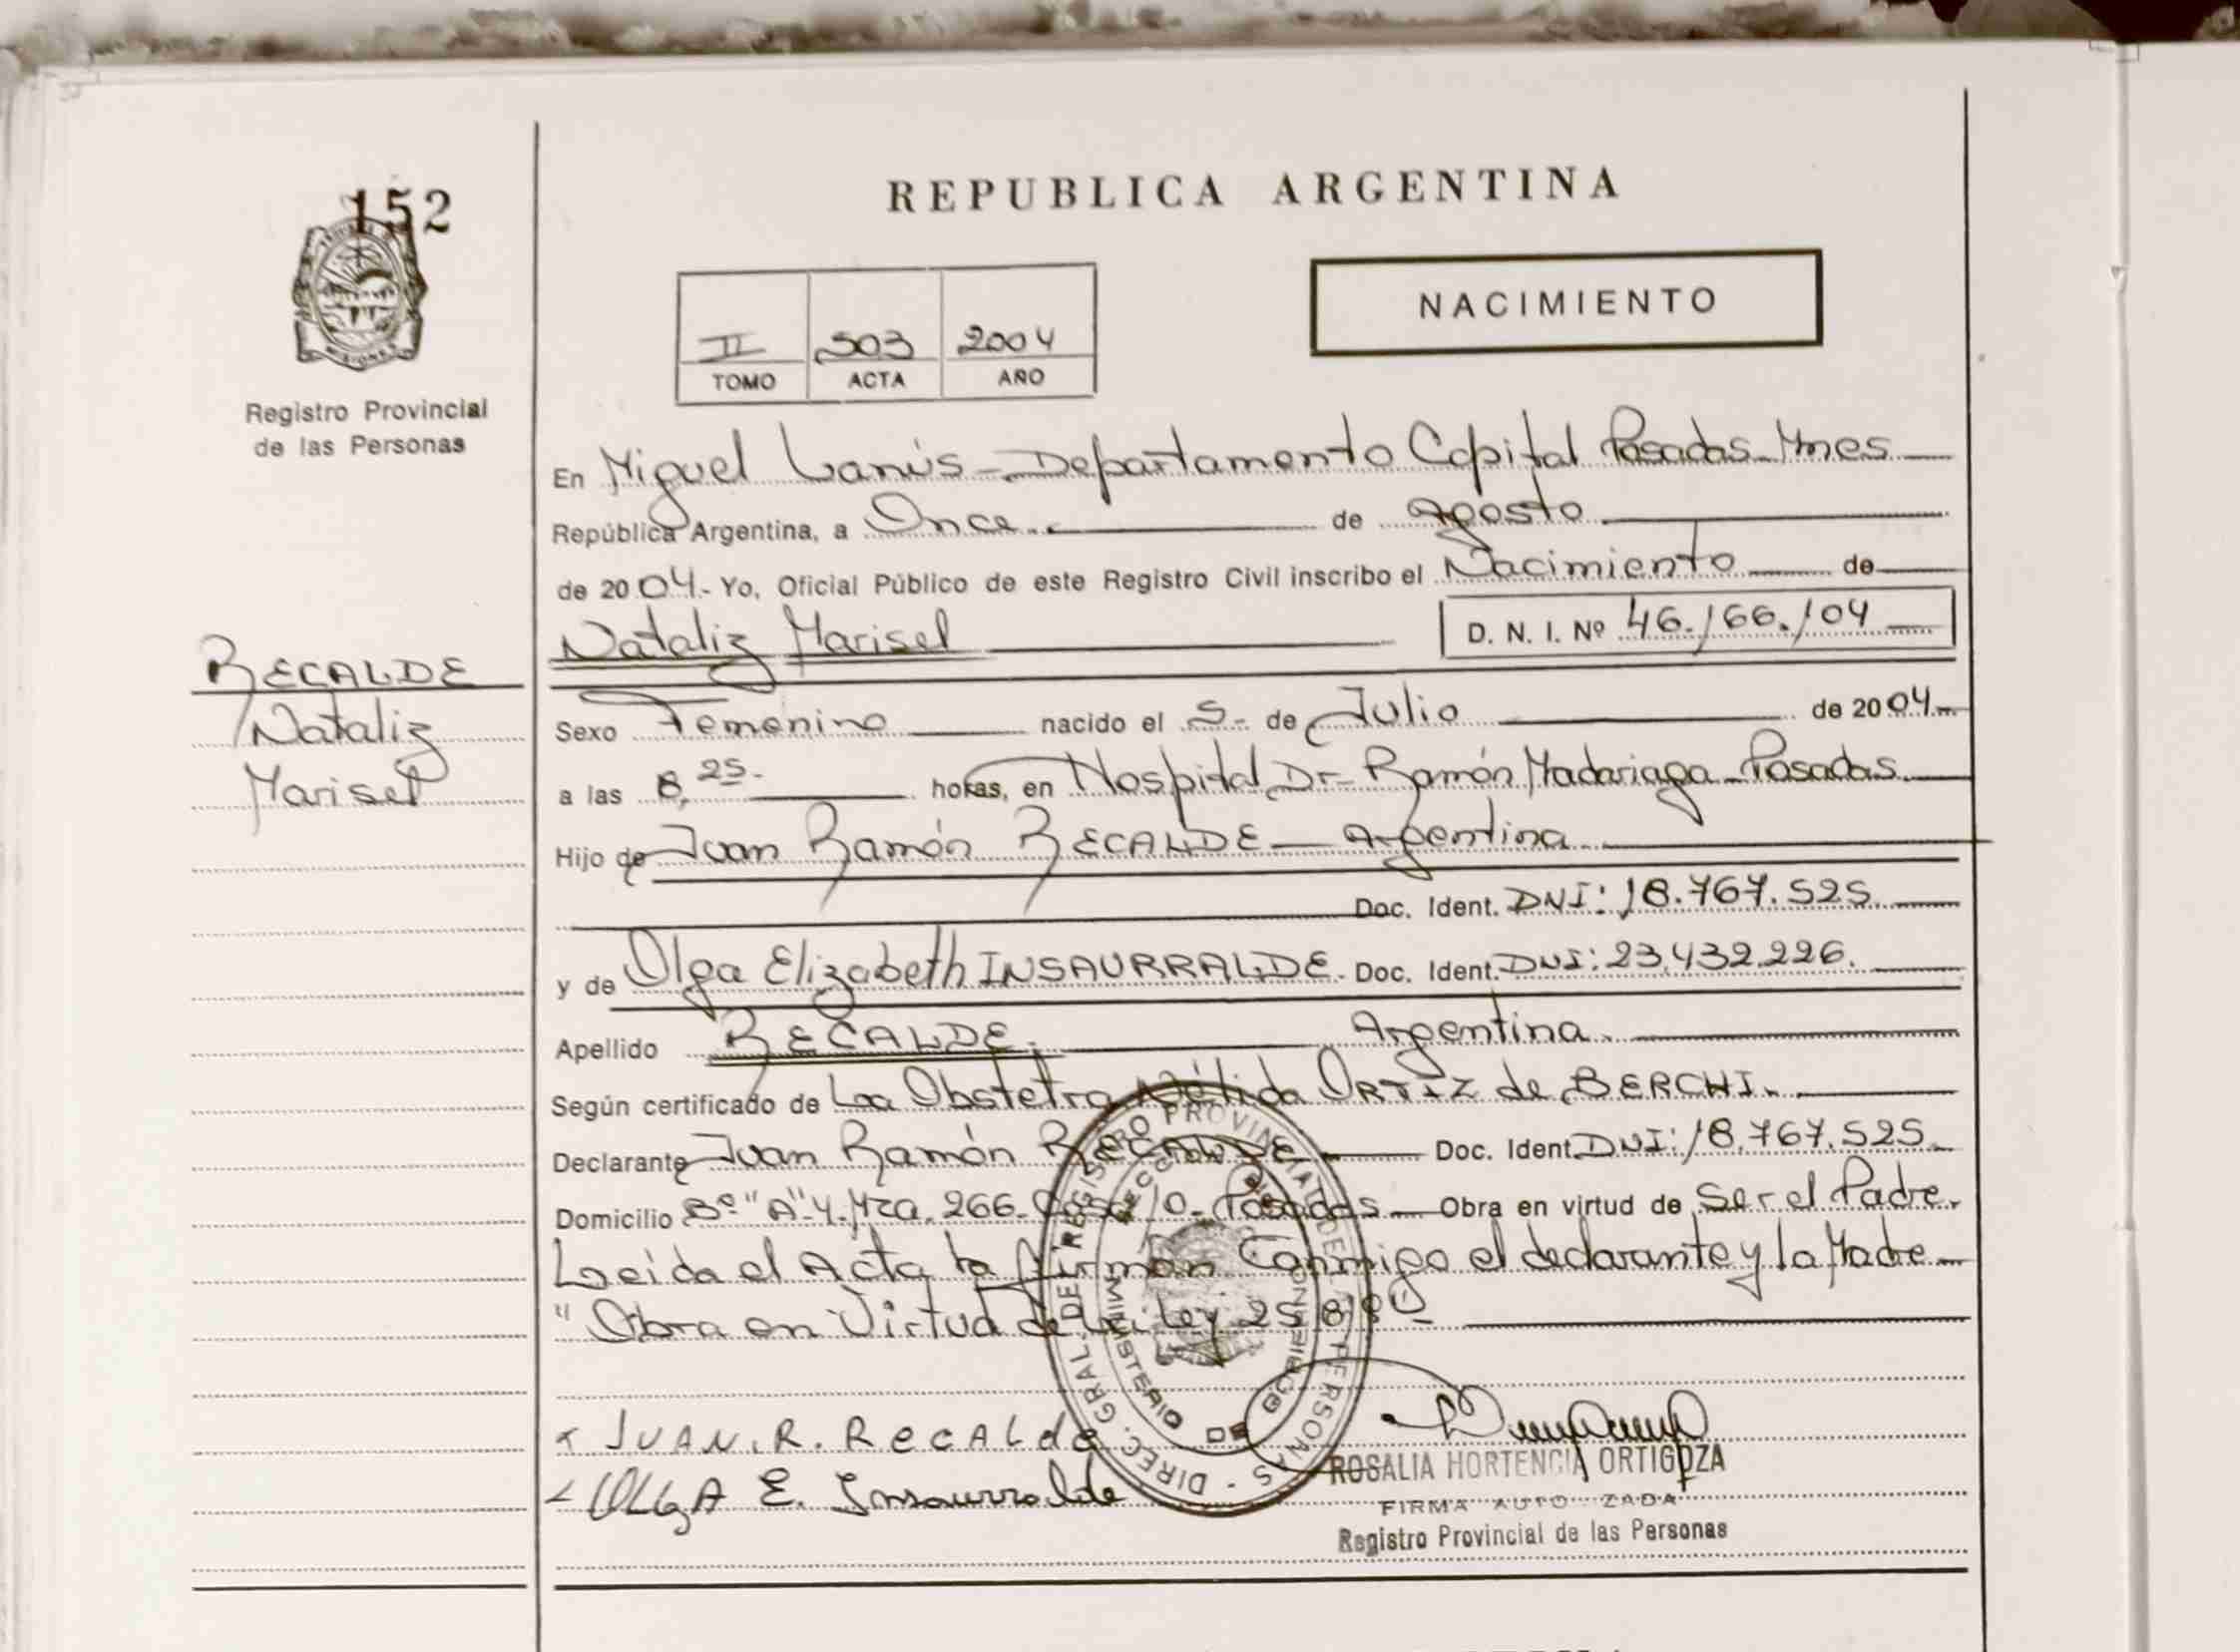 152
REPUBLICA ARGENTINA
NACIMIENTO
II 503 2004
TOMO ACTA AÑO
Registro Provincial
de las Personas
En Miguel Lanús - Departamento Capital Posadas - Mnes
República Argentina, a Once de Agosto
de 2004.- Yo, Oficial Público de este Registro Civil inscribo el Nacimiento de
Nataliz Marisel D. N. I. Nº 46.166.104
RECALDE
Nataliz
Marisel
Sexo Femenino nacido el 5- de Julio de 2004-
a las 8,25- horas, en Hospital Dr- Ramón Madariaga - Posadas
Hijo de Juan Ramón RECALDE - Argentina
Doc. Ident. DNI: 18.767.525.
y de Olga Elizabeth INSAURRALDE - Doc. Ident. DNI: 23.432.226.
Apellido RECALDE. Argentina.
Según certificado de La Obstetra Nélida ORTIZ de BERCHI.
Declarante Juan Ramón RECALDE Doc. Ident. DNI: 18.767.525-
Domicilio Bº "A"-4-Mza. 266- Casa 10- Posadas - Obra en virtud de Ser el Padre.
Leida el Acta la firman Conmigo el declarante y la Madre -
"Obra en Virtud de la Ley 25.819"-
DIREC. GRAL. DE REGISTRO PROVINCIAL DE LAS PERSONAS
MINISTERIO DE GOBIERNO
x JUAN. R. Recalde
x OLGA E. Insaurralde
ROSALIA HORTENCIA ORTIGOZA
FIRMA AUTORIZADA
Registro Provincial de las Personas